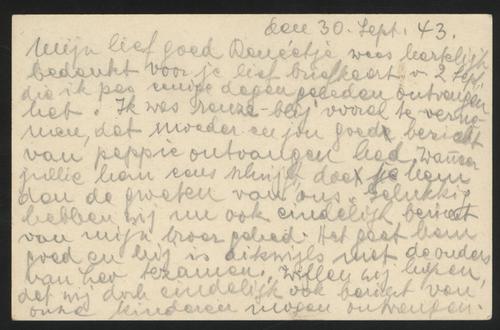 den 30. Sept. 43.
Mijn lief goed Reneétje, wees hartelijk
bedankt voor je lief briefkaart v. 2 Sept,
die ik pas enige dagen geleden ontvangen
heb. Ik was reuze-blij vooral te verne-
men, dat moeder en jou goede bericht
van pappie ontvangen had. Wanneer
jullie hem eens schrijft, doe je hem
dan de groeten van ons. Gelukkig
hebben wij nu ook eindelijk bericht
van mijn broer gehad. Het gaat hem
goed en hij is dikwijls met de ouders
van her tezamen. Willen wij hopen,
dat wij doch eindelijk ook bericht van
onze kinderen mogen ontvangen.